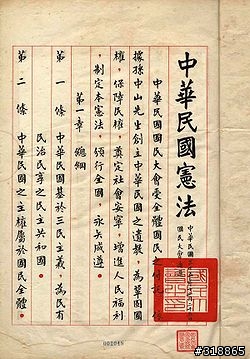 中華民國憲法
中華民國
國民大會
中華民國國民大會受全體國民之付託，依
據孫中山先生創立中華民國之遺教，為鞏固國
權，保障民權，奠定社會安寧，增進人民福利
，制定本憲法，頒行全國，永矢咸遵。
第一章 總綱
第一條 中華民國基於三民主義，為民有
民治民享之民主共和國。
第二條 中華民國之主權屬於國民全體。
#318865